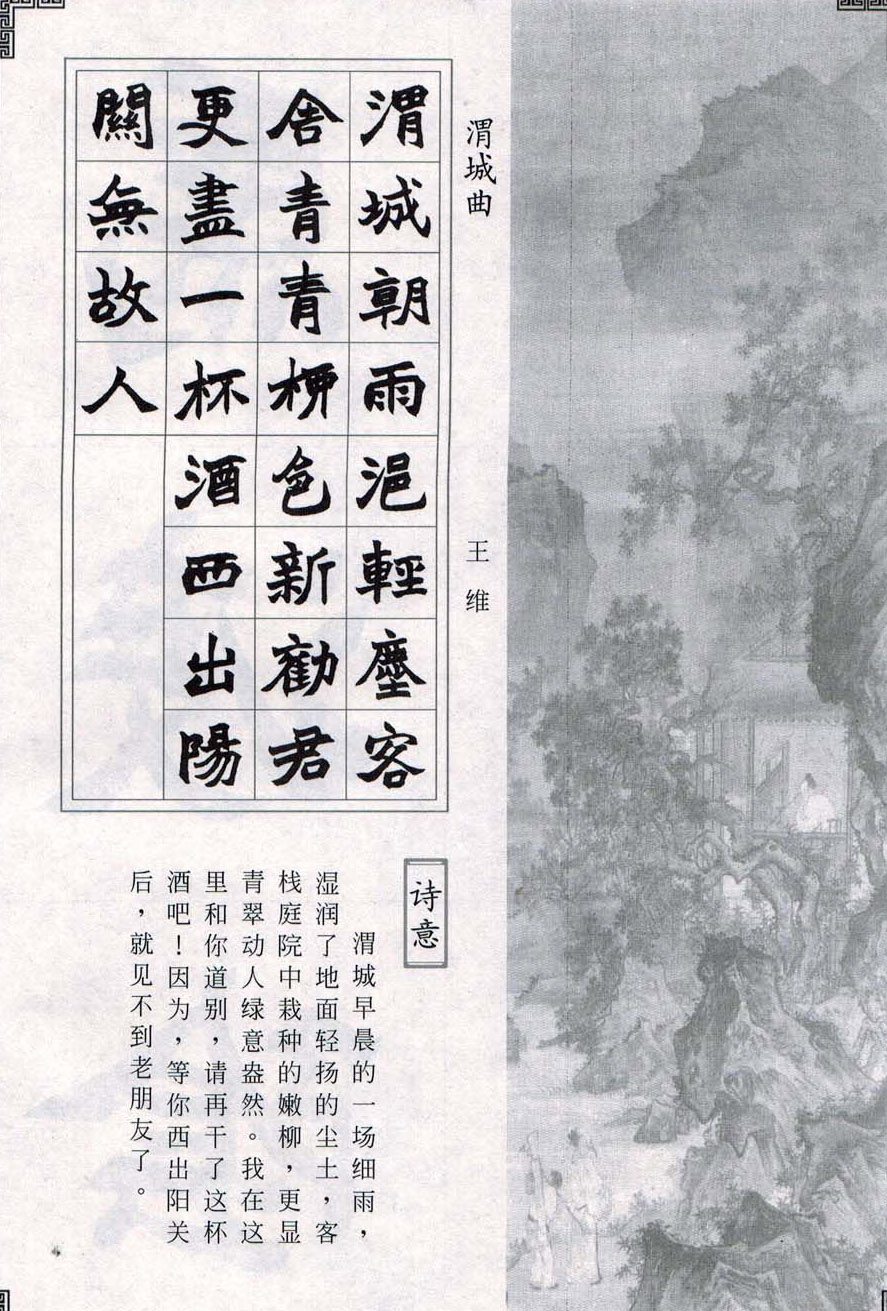 渭城曲
王维
渭城朝雨浥輕塵客
舍青青柳色新勸君
更盡一杯酒西出陽
關無故人
诗意
渭城早晨的一场细雨，
湿润了地面轻扬的尘土，客
栈庭院中栽种的嫩柳，更显
青翠动人绿意盎然。我在这
里和你道别，请再干了这杯
酒吧！因为，等你西出阳关
后，就见不到老朋友了。